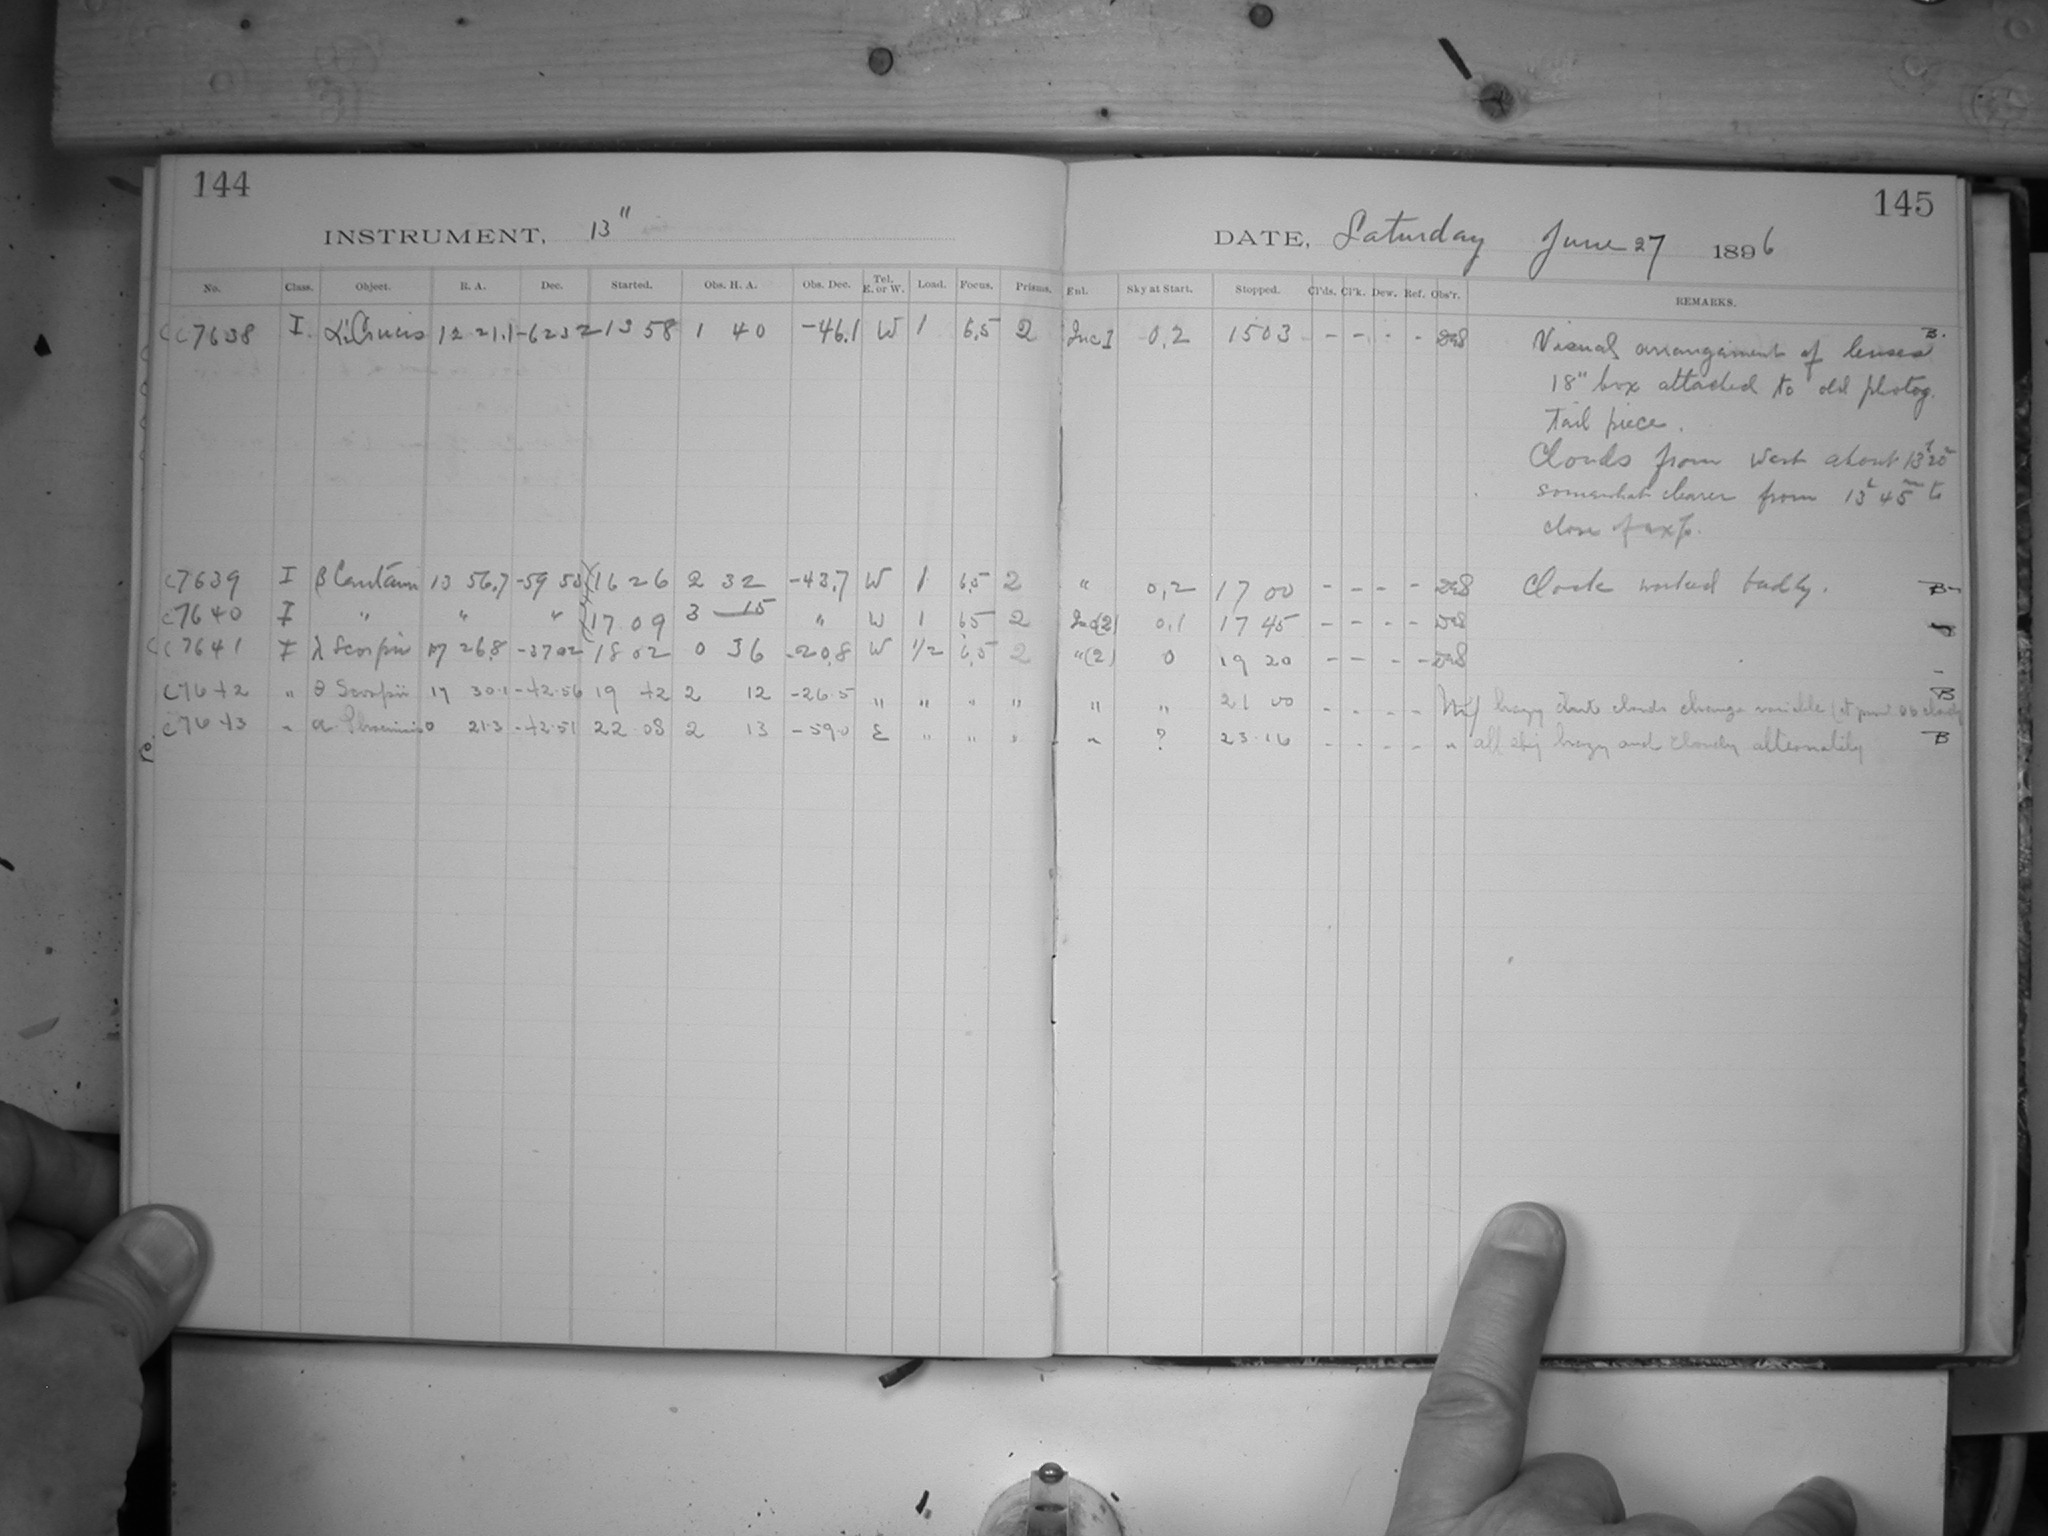 144
145
INSTRUMENT, 13"
DATE, Saturday June 27 1896
No. Class. Object. R. A. Dec. Started. Obs. H. A. Obs. Dec. Tel. E. or W. Load. Focus. Prisms. Enl. Sky at Start. Stopped. Cl'ds. Cl'k. Dew. Ref. Obs'r. REMARKS.
C7638 I. α' Crucis 12 21.1 -62 32 13 58 1 40 -46.1 W 1 6.5 2 Inc I 0.2 15 03 - - - - Visual arrangement of lenses B.
18" box attached to old photog.
tail piece.
Clouds from West about 13h 20m
somewhat clearer from 13h 45m to
close of exp.
C7639 I β Centauri 13 56.7 -59 53 16 26 2 32 -43.7 W 1 6.5 2 " 0.2 17 00 - - - - Clock worked badly. B-
C7640 I " " " 17 09 3 15 " W 1 6.5 2 Inc(2) 0.1 17 45 - - - -
C7641 I λ Scorpii 17 26.8 -37 02 18 02 0 36 -20.8 W 1/2 6.5 2 "(2) 0 19 20 - - - -
C7642 " θ Scorpii 17 30.1 -42.56 19 42 2 12 -26.5 " " " " " " 21 00 - - - - hazy clouds change variable cloudy B
C7643 " α Phoenicis 0 21.3 -42.51 22 08 2 13 -59.0 E " " " " ? 23.16 - - - - " all sky hazy and cloudy alternately B